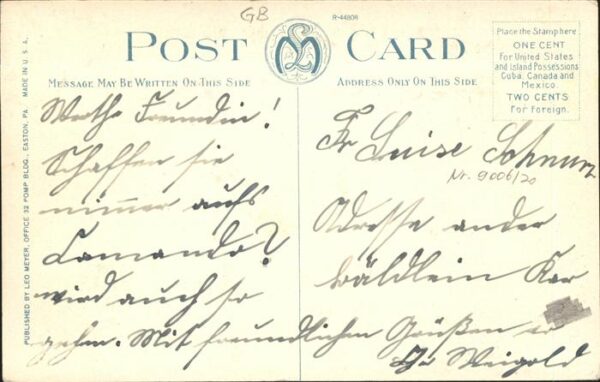 GB
R-44808
POST CARD
MESSAGE MAY BE WRITTEN ON THIS SIDE
ADDRESS ONLY ON THIS SIDE
Place the Stamp here
ONE CENT
For United States
and Island Possessions
Cuba, Canada and
Mexico.
TWO CENTS
For Foreign.
PUBLISHED BY LEO MEYER, OFFICE 32 POMP BLDG., EASTON, PA. MADE IN U.S.A.
Werthe Freundin!
Schaffen sie
nimmer aufs
Comando?
wird auch so
gehn. Mit freundlichen Grüßen
Weigold
Fr Luise
Nr. 9006/20
Adresse an der